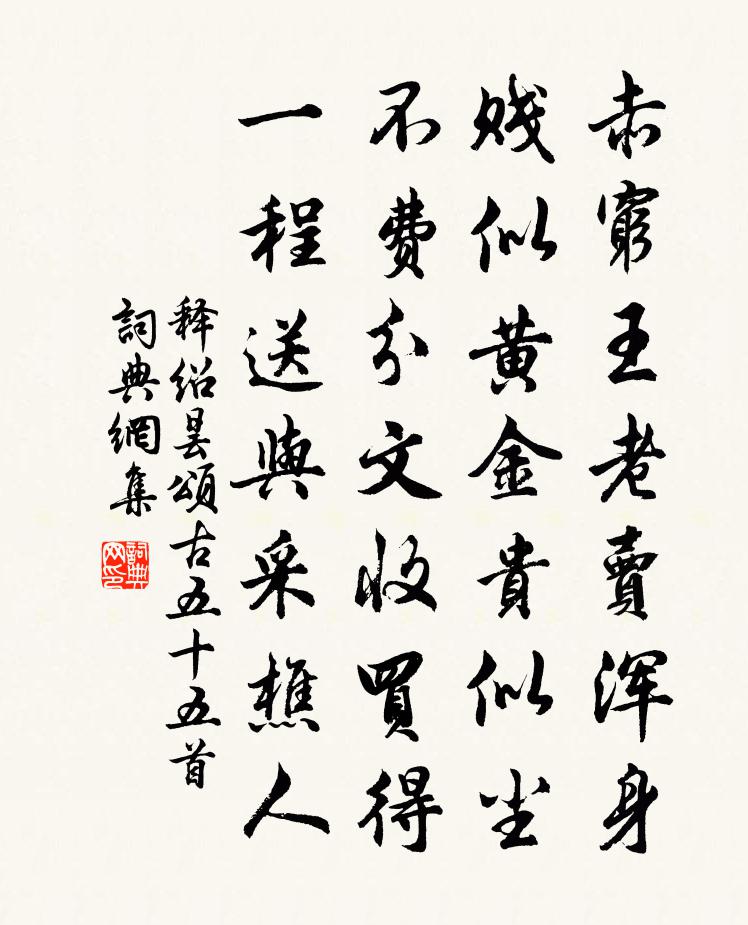 赤窮王老賣渾身
賤似黃金貴似尘
不費分文收買得
一程送與采樵人
释紹曇頌古五十五首
詞典網集
詞典网印